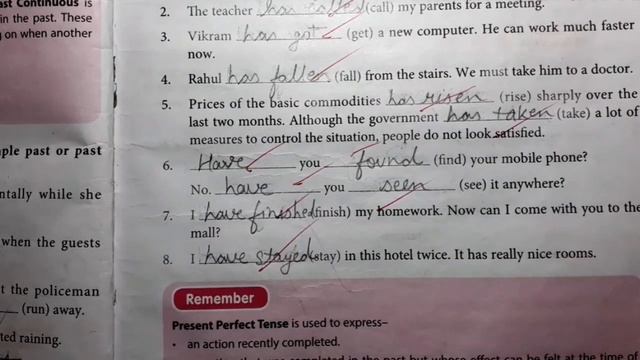 ast Continuous is
in the past. These
g on when another
ple past or past
ntally while she
when the guests
t the policeman
(run) away.
ted raining.
2. The teacher has called (call) my parents for a meeting.
3. Vikram has got (get) a new computer. He can work much faster
now.
4. Rahul has fallen (fall) from the stairs. We must take him to a doctor.
5. Prices of the basic commodities has risen (rise) sharply over the
last two months. Although the government has taken (take) a lot of
measures to control the situation, people do not look satisfied.
6. Have you found (find) your mobile phone?
No. have you seen (see) it anywhere?
7. I have finished (finish) my homework. Now can I come with you to the
mall?
8. I have stayed (stay) in this hotel twice. It has really nice rooms.
Remember
Present Perfect Tense is used to express–
• an action recently completed.
completed in the past but whose effect can be felt at the time of